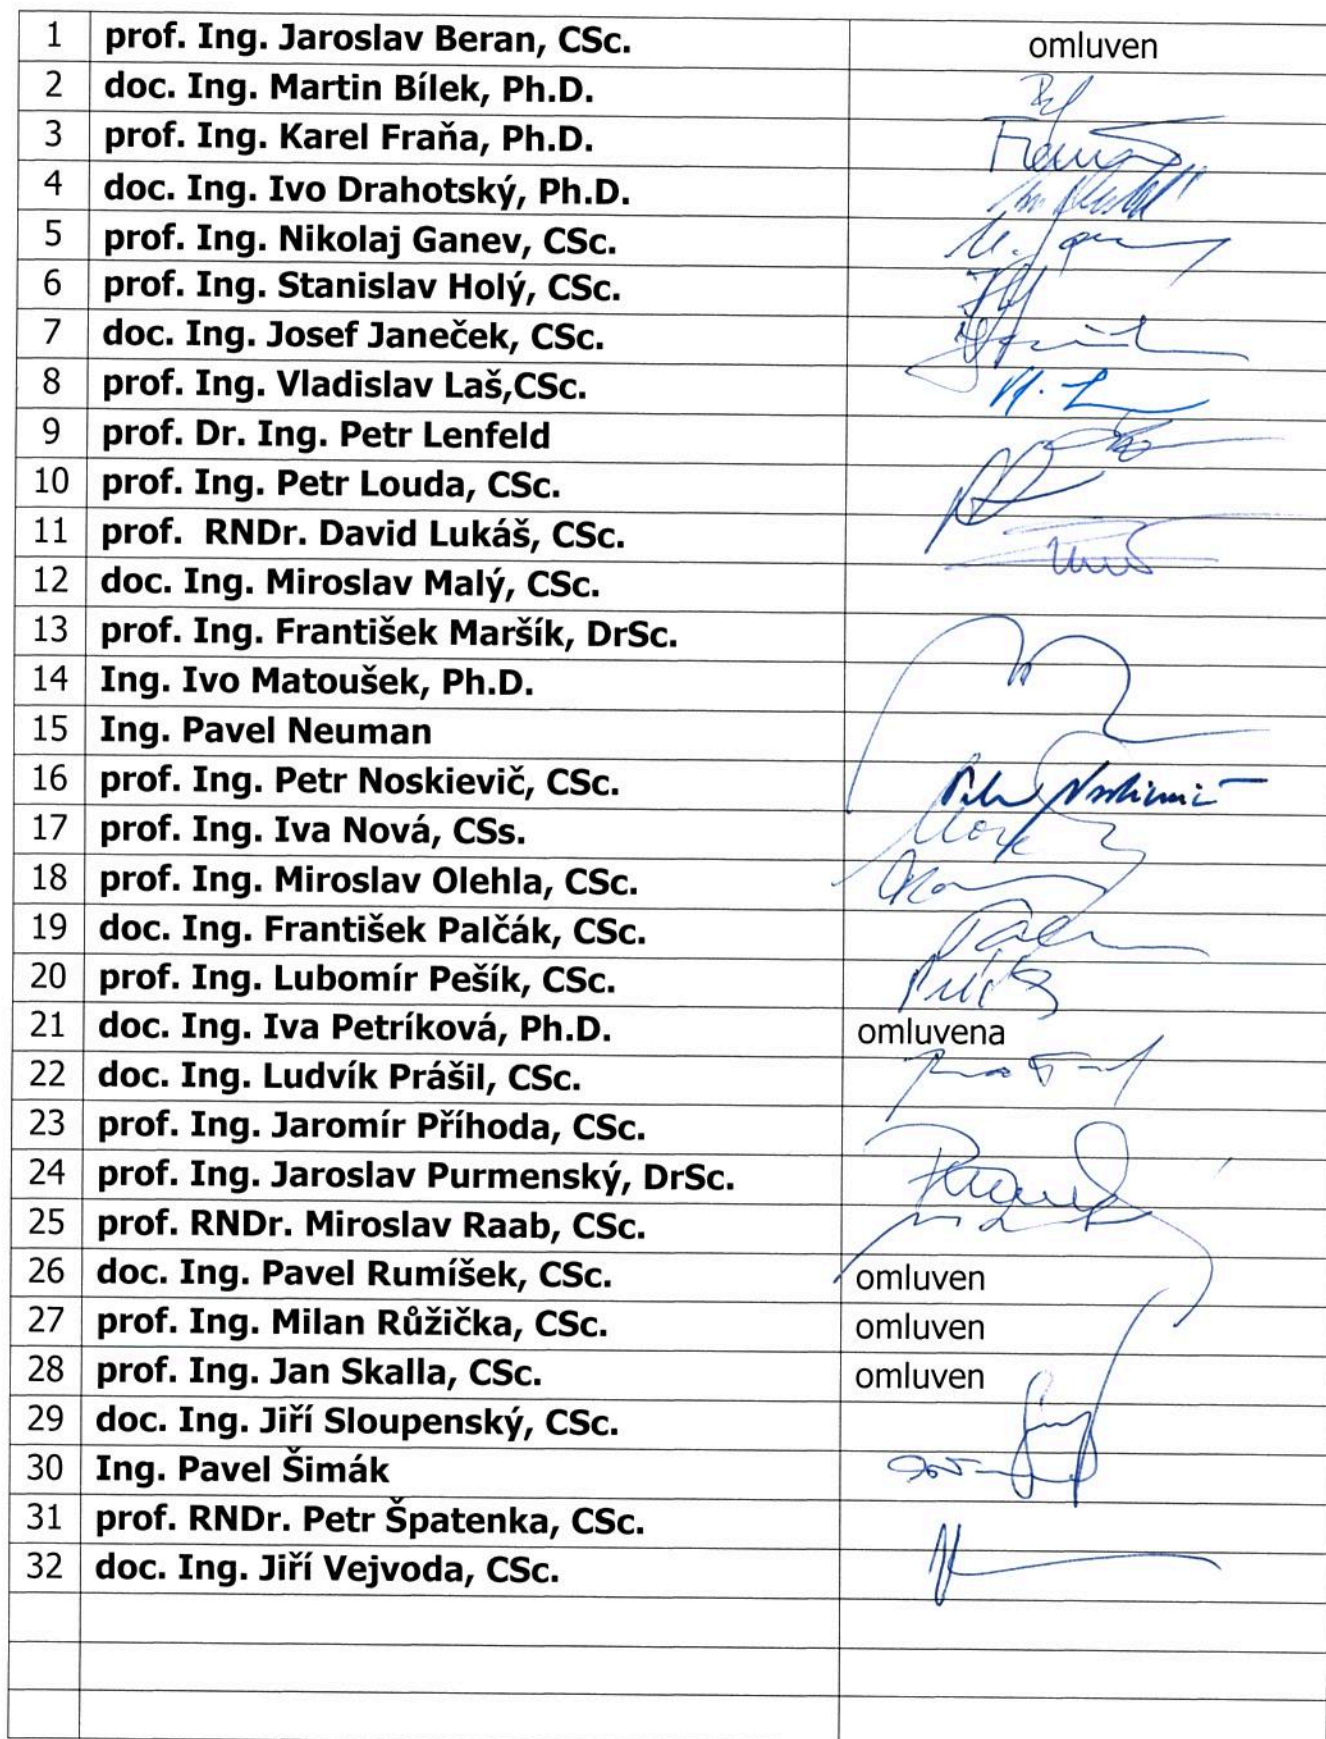 1 prof. Ing. Jaroslav Beran, CSc. omluven
2 doc. Ing. Martin Bílek, Ph.D.
3 prof. Ing. Karel Fraňa, Ph.D.
4 doc. Ing. Ivo Drahotský, Ph.D.
5 prof. Ing. Nikolaj Ganev, CSc.
6 prof. Ing. Stanislav Holý, CSc.
7 doc. Ing. Josef Janeček, CSc.
8 prof. Ing. Vladislav Laš,CSc.
9 prof. Dr. Ing. Petr Lenfeld
10 prof. Ing. Petr Louda, CSc.
11 prof. RNDr. David Lukáš, CSc.
12 doc. Ing. Miroslav Malý, CSc.
13 prof. Ing. František Maršík, DrSc.
14 Ing. Ivo Matoušek, Ph.D.
15 Ing. Pavel Neuman
16 prof. Ing. Petr Noskievič, CSc.
17 prof. Ing. Iva Nová, CSs.
18 prof. Ing. Miroslav Olehla, CSc.
19 doc. Ing. František Palčák, CSc.
20 prof. Ing. Lubomír Pešík, CSc.
21 doc. Ing. Iva Petríková, Ph.D. omluvena
22 doc. Ing. Ludvík Prášil, CSc.
23 prof. Ing. Jaromír Příhoda, CSc.
24 prof. Ing. Jaroslav Purmenský, DrSc.
25 prof. RNDr. Miroslav Raab, CSc.
26 doc. Ing. Pavel Rumíšek, CSc. omluven
27 prof. Ing. Milan Růžička, CSc. omluven
28 prof. Ing. Jan Skalla, CSc. omluven
29 doc. Ing. Jiří Sloupenský, CSc.
30 Ing. Pavel Šimák
31 prof. RNDr. Petr Špatenka, CSc.
32 doc. Ing. Jiří Vejvoda, CSc.